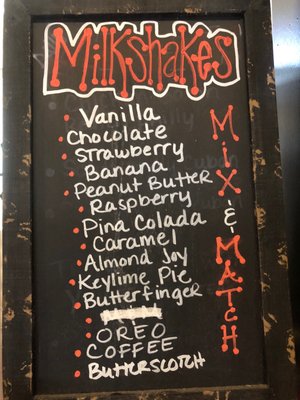 MilKshakes
Vanilla
Chocolate
Strawberry
Banana
Peanut Butter
Raspberry
Pina Colada
Caramel
Almond Joy
Keylime Pie
Butterfinger
OREO
COFFEE
BUTTERSCOTCH
MiX & MATCH